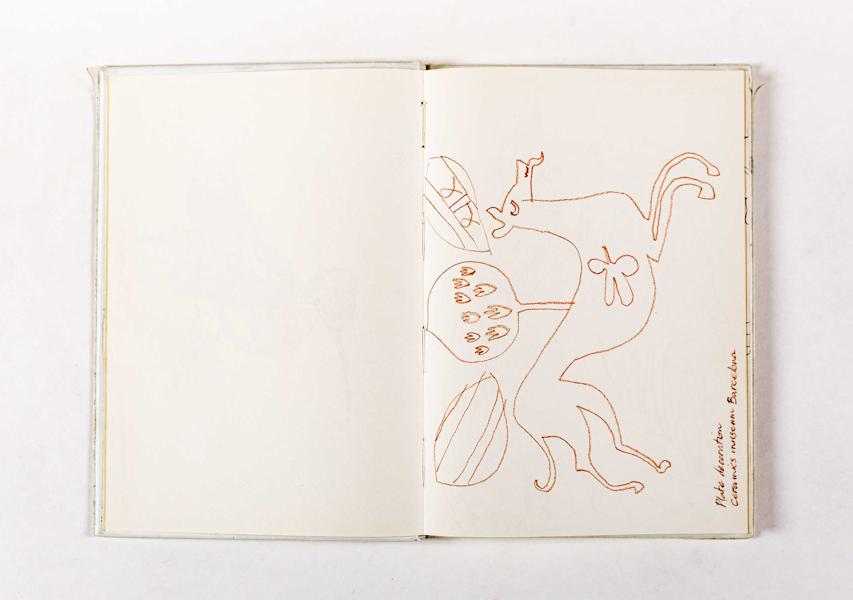 Plate decoration
Ceramics museum Barcelona